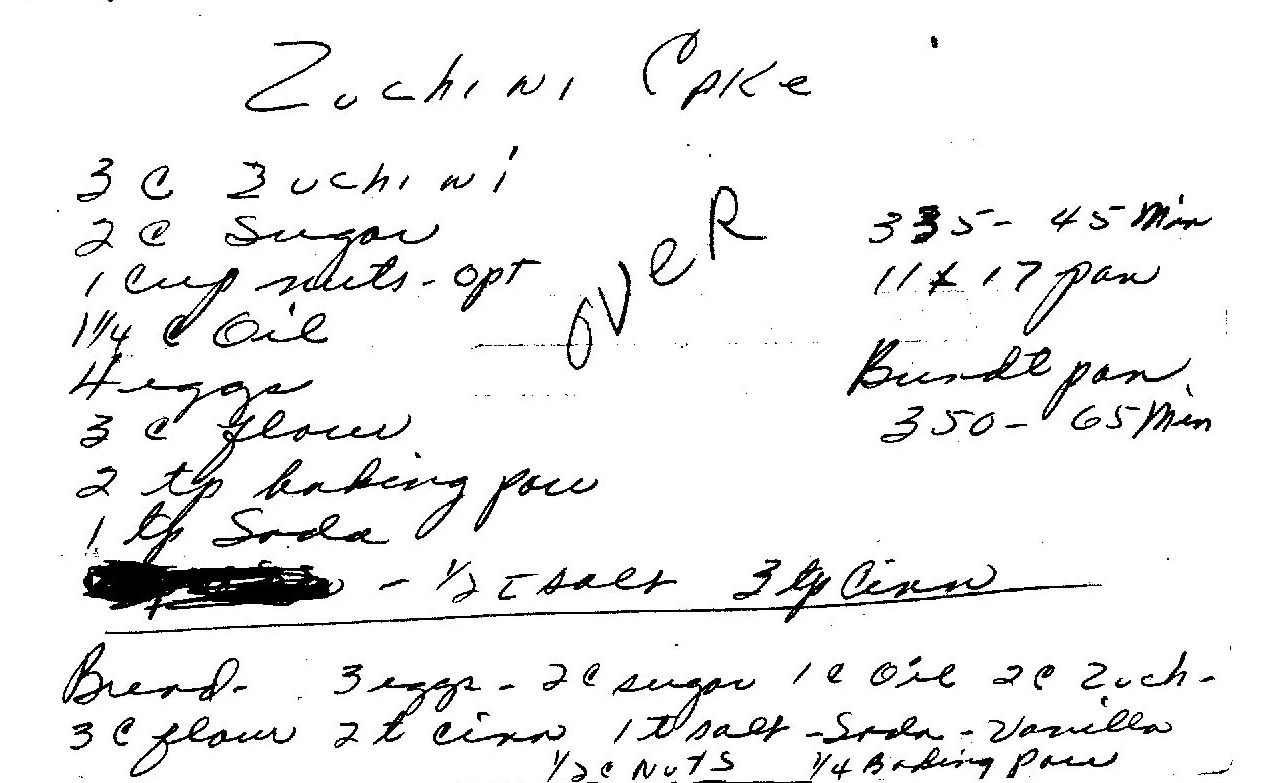 Zuchini Cake
3 C Zuchini
2 C Sugar
1 Cup nuts - opt
1 1/4 C Oil
4 eggs
3 C flour
2 tp baking pow
1 tp Soda
- 1/2 t salt 3 tp Cinn
OVER
335 - 45 Min
11 x 17 pan
Bundt pan
350 - 65 Min
Bread - 3 eggs - 2 C sugar 1 C Oil 2 C Zuch -
3 C flour 2 t cinn 1 t salt - Soda - Vanilla
1/2 c NUTS 1/4 Baking pow